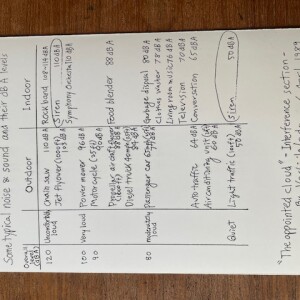 Some typical noise & sound and their dBA levels
Overall level (dBA) Outdoor Indoor
120 Uncomfortably loud Chain saw 110 dBA Rock band 108-114 dBA
Jet flyover (1000ft) 103 dBA Siren 110 dBA
Symphony Orchestra 110 dBA
100 Very loud Power mower 96 dBA
90 Motorcycle (25ft) 90 dBA
Propellar aircraft flyover (1000ft) 88 dBA Food blender 88 dBA
Diesel truck 40mph (50ft) 84 dBA
80 moderately loud Passenger car 65mph (25ft) 77 dBA Garbage disposal 80 dBA
Clothes washer 78 dBA
Living room music 76 dBA
Television 70 dBA
Auto traffic 64 dBA Conversation 65 dBA
Airconditioning unit 60 dBA
Quiet Light traffic (100ft) 50 dBA Siren 50 dBA
"The appointed cloud" - Interference section -
April 1989